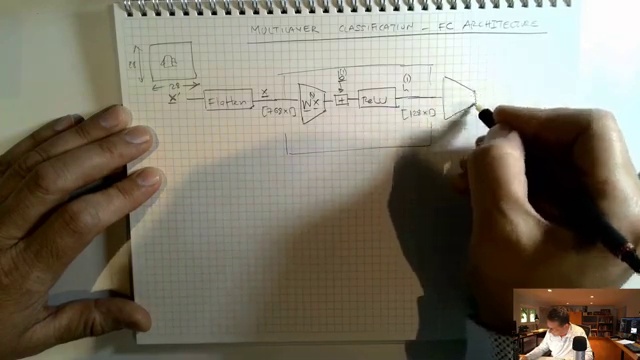 MULTILAYER CLASSIFICATION - FC ARCHITECTURE
28
x'
Flatten
x
[768x1]
W x
+
ReLU
[128x1]